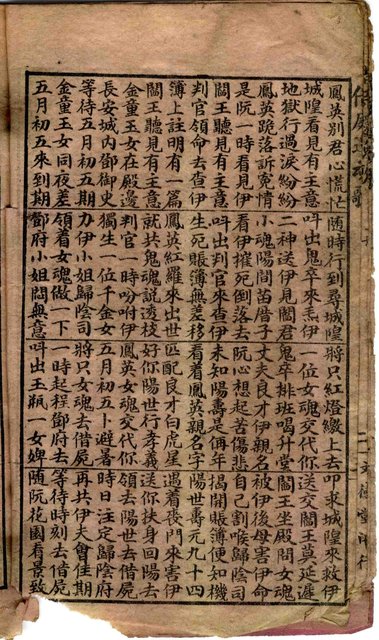 鳳英別君心慌忙 隨時行到尋城隍 將只紅燈繳上去 叩求城隍來救伊
城隍看見有主意 叫出鬼卒來 伊 一位女魂交代你 送交閻王莫延遲
地獄行過淚紛紛 二神送伊見閻君 鬼卒排班喝升堂 閻王坐殿問女魂
鳳英跪落訴冤情 小魂陽間苗厝子 丈夫良才伊親名 被伊後母害伊命
是阮一時看見伊 看伊摧死倒落去 阮心想起苦傷悲 自己割喉歸陰司
閻王聽見有主意 叫出判官來查伊 未知陽壽是佴年 揭開賬簿便知機
判官領命去查伊 生死賬簿無差移 看看鳳英親名字 陽世壽元九十四
簿上註明有一篇 鳳英紅羅來出世 匹配良才白虎星 遇着喪門來害伊
閻王聽見有主意 就共鬼魂說透枝 好你陽世行孝義 送你扶身回陽去
金童玉女在殿邊 判官一時吩咐伊 鳳英女魂交代你 領去陽世去借屍
長安城內鄧御史 獨生一位千金女 五月初五卜避暑 時日注定歸陰府
等待五月初五期 力伊小姐歸陰司 將只女魂去借屍 再共伊夫會佳期
金童玉女同夜差 領着女魂做一下 一時起程鄧府去 等待時刻去借屍
五月初五來到期 鄧府小姐悶無意 叫出玉瓶一女婢 隨阮花園看景致